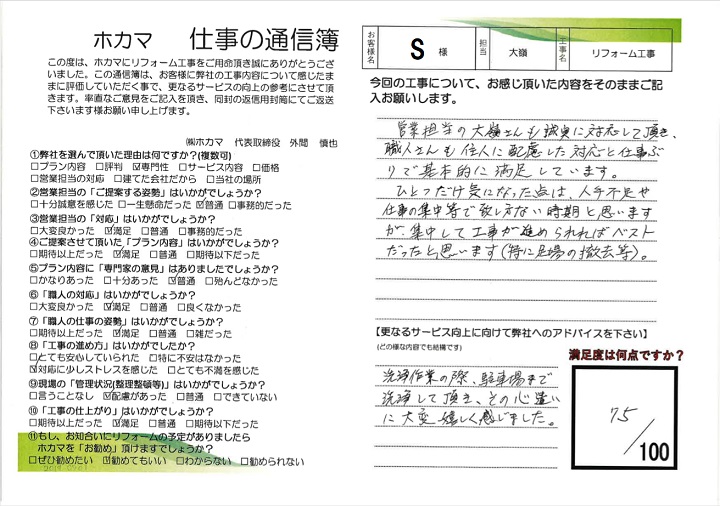 ホカマ 仕事の通信簿
この度は、ホカマにリフォーム工事をご用命頂き誠にありがとうござ
いました。この通信簿は、お客様に弊社の工事内容について感じたま
まに評価していただく事で、更なるサービスの向上の参考にさせて頂
きます。率直なご意見をご記入を頂き、同封の返信用封筒にてご返送
下さいます様お願い申し上げます。
㈱ホカマ 代表取締役 外間 慎也
①弊社を選んで頂いた理由は何ですか?(複数可)
□プラン内容 □評判 ☑専門性 □サービス内容 □価格
□営業担当の対応 □建てた会社だから □当社の場所
②営業担当の「ご提案する姿勢」はいかがでしょうか?
□十分誠意を感じた □一生懸命だった ☑普通 □事務的だった
③営業担当の「対応」はいかがでしょうか?
□大変良かった ☑満足 □普通 □事務的だった
④ご提案させて頂いた「プラン内容」はいかがでしょうか?
□期待以上だった ☑満足 □普通 □期待以下だった
⑤プラン内容に「専門家の意見」はありましたでしょうか?
□かなりあった □十分あった ☑普通 □殆んどなかった
⑥「職人の対応」はいかがでしょうか?
□大変良かった ☑満足 □普通 □良くなかった
⑦「職人の仕事の姿勢」はいかがでしょうか?
□期待以上だった ☑満足 □普通 □雑だった
⑧「工事の進め方」はいかがでしたか?
□とても安心していられた □特に不安はなかった
☑対応に少しストレスを感じた □とても不満を感じた
⑨現場の「管理状況(整理整頓等)」はいかがでしょうか?
□言うことなし ☑配慮があった □普通 □できていない
⑩「工事の仕上がり」はいかがでしょうか?
□期待以上だった ☑満足 □普通 □期待以下だった
⑪もし、お知合いにリフォームの予定がありましたら
ホカマを「お勧め」頂けますでしょうか?
□ぜひ勧めたい ☑勧めてもいい □わからない □勧められない
お客様名 S 様 担当 大嶺 工事名 リフォーム工事
今回の工事について、お感じ頂いた内容をそのままご記
入お願いします。
営業担当の大嶺さんも誠実に対応して頂き、
職人さんも住人に配慮した対応と仕事ぶ
りで基本的に満足しています。
ひとつだけ気になった点は、人手不足や
仕事の集中等で致し方ない時期と思います
が、集中して工事が進められればベスト
だったと思います(特に足場の撤去等)。
【更なるサービス向上に向けて弊社へのアドバイスを下さい】
(どの様な内容でも結構です)
洗浄作業の際、駐車場まで
洗浄して頂き、その心遣い
に大変嬉しく感じました。
満足度は何点ですか?
75
/100